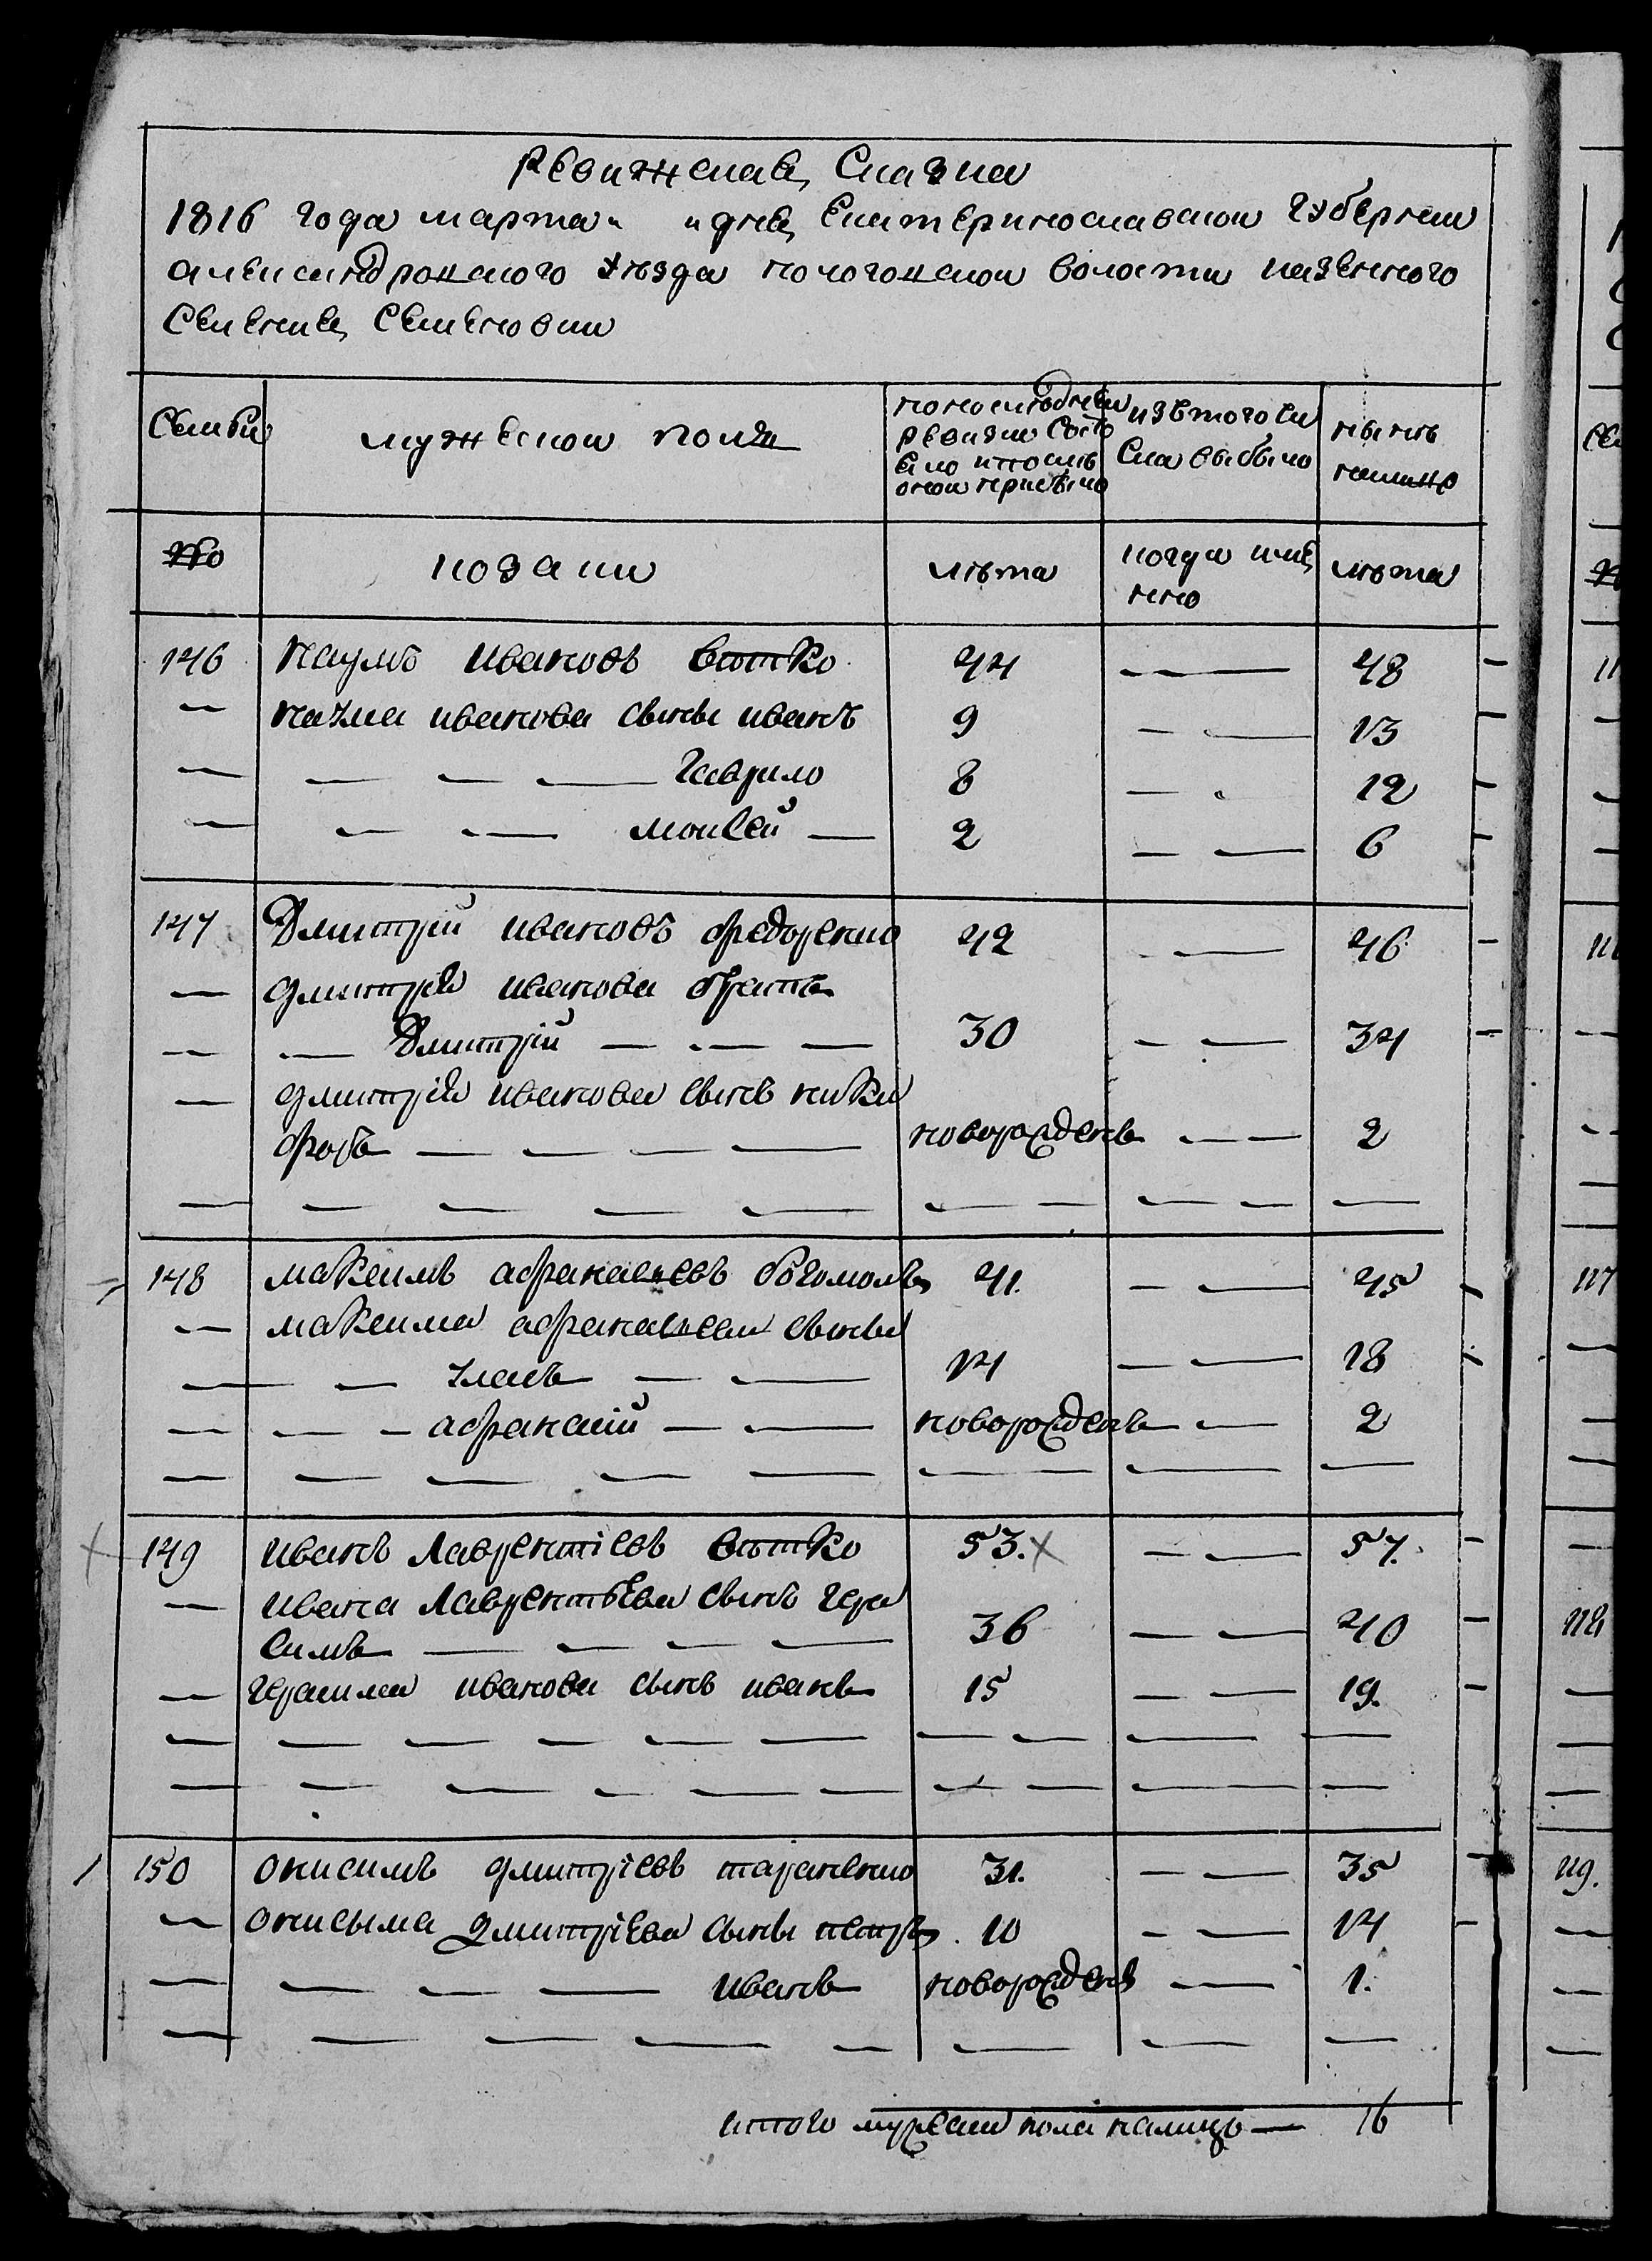 Ревижская Сказка
1816 года марта „ „ дня Екатеринославской Губернии
александровского уезда пологовской волости казенного
Селения Семеновки
Семьи
мужеской полъ
по последней ревизии Состояло и после оной прибыло
изъ того числа выбыло
ныне налицо
№
козаки
лѣта
когда именно
лѣта
146 Наумъ Ивановъ 44 — 48
— Наума иванова сыны иванъ 9 — 13
— — — — Гаврило 8 — 12
— — — Моисей — 2 — 6
147 Дмитрій ивановъ федоренко 42 — 46
— дмитрія иванова братъ
— — Дмитрій — — — 30 — 34
— дмитрія иванова сынъ ники
форъ — — — — новорожденъ — 2
148 максимъ афанасьевъ богомолъ 41. — 45
— максима афанасьева сыны
— — власъ — — 14 — 18
— — — афанасій — — новорожденъ — 2
149 иванъ Лаврентіевъ 53. — 57.
— ивана Лаврентьева сынъ Гера
симъ — — — — 36 — 40
— Герасима иванова сынъ иванъ 15 — 19.
150 онисимъ дмитріевъ тараненко 31. — 35
— онисыма дмитріева сыны петръ 10 — 14
— — — — иванъ новорожденъ — 1.
итого мужеска пола налицо — 16